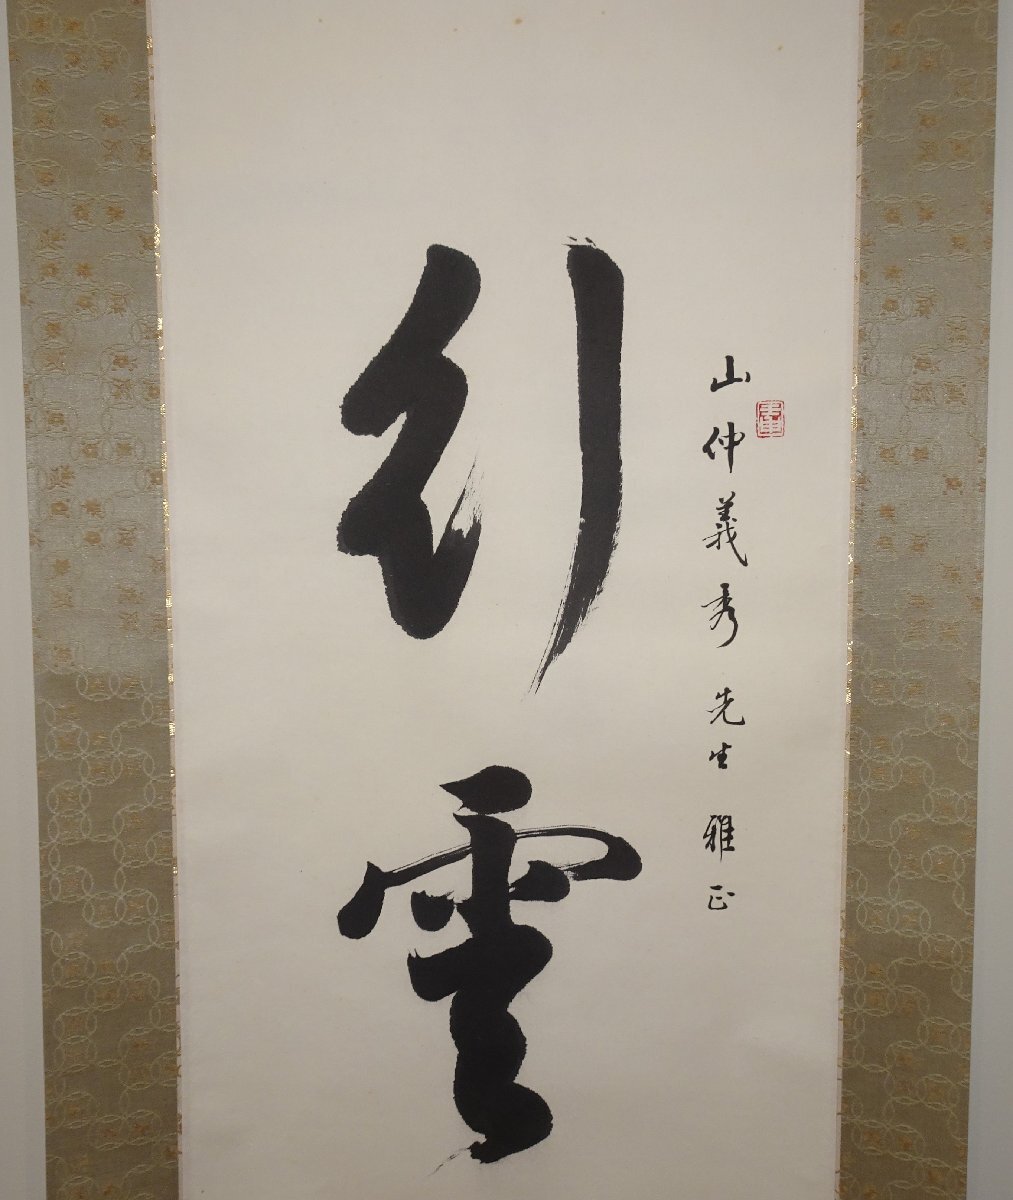 山仲義秀先生雅正
引雲